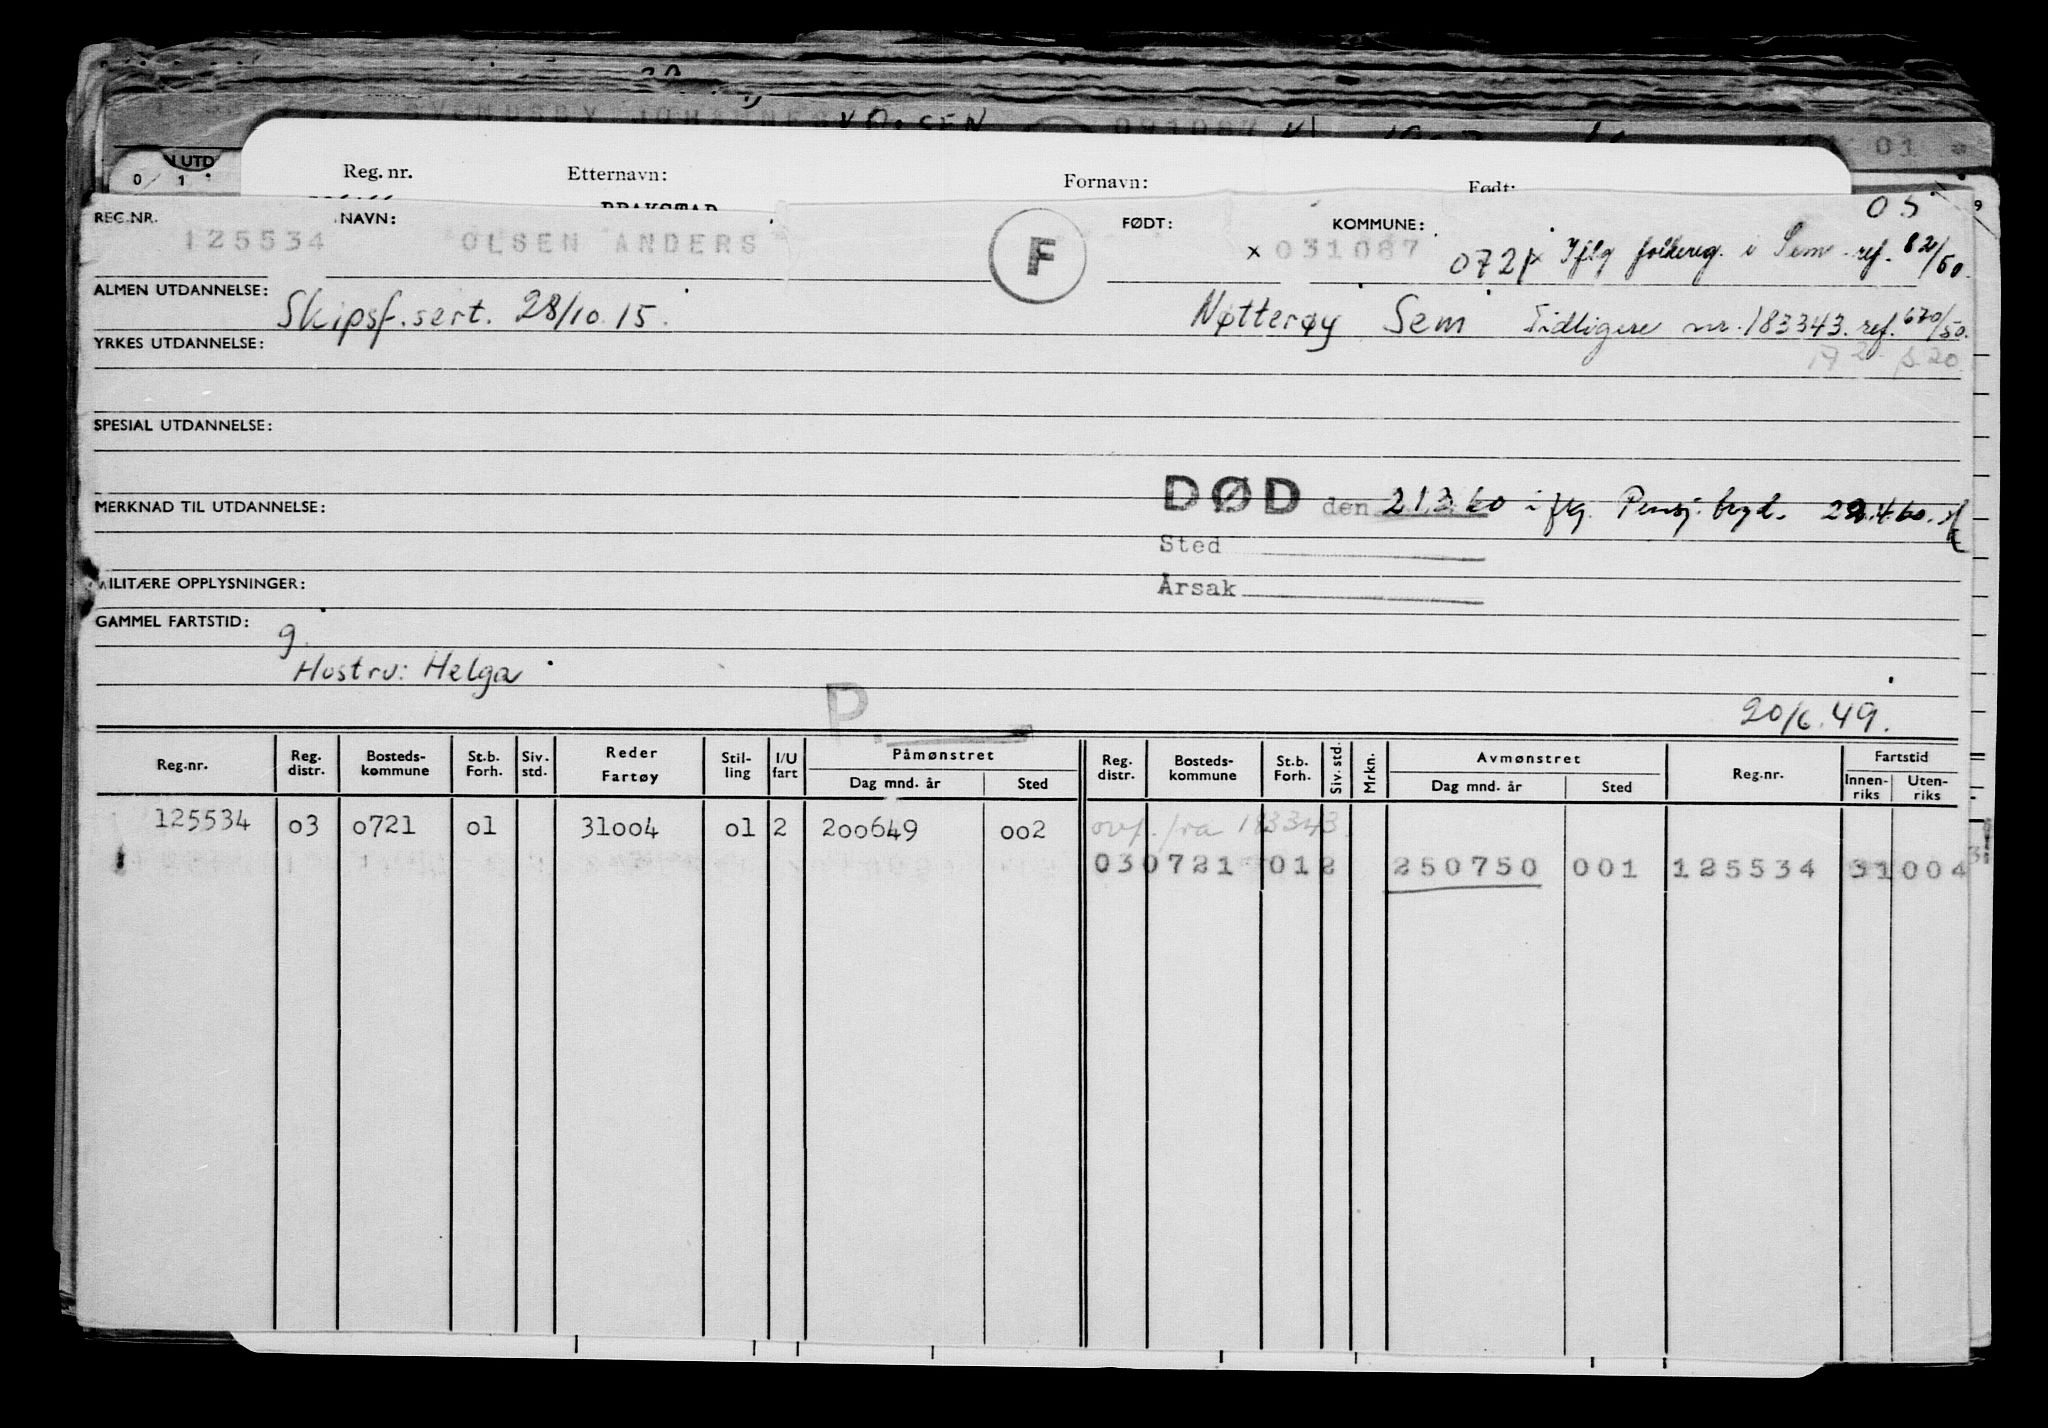 SVENDSBY JOHANNES OLSEN 091087
N UTD
0 1
01
Reg. nr. Etternavn: Fornavn: Født:
BRAKSTAD
05
REG.NR. NAVN: FØDT: KOMMUNE:
125534 OLSEN ANDERS F x 031087 0721 x Iflg folkereg. i Sem ref. 82/50.
ALMEN UTDANNELSE: Skipsf. sert. 28/10.15. Nøtterøy Sem Tidligere nr. 183343. ref. 670/50.
YRKES UTDANNELSE:
SPESIAL UTDANNELSE:
DØD den 21.3.60 iflg. Pensj. trygd. 22.4.60.
MERKNAD TIL UTDANNELSE:
Sted
MILITÆRE OPPLYSNINGER:
Årsak
GAMMEL FARTSTID: g.
Hustru: Helga
P.
20/6.49.
Reg.nr. Reg. distr. Bosteds-kommune St.b. Forh. Siv. std. Reder Fartøy Stil-ling I/U fart Påmønstret Dag mnd. år Sted Reg. distr. Bosteds-kommune St.b. Forh. Siv. std. Mrkn. Avmønstret Dag mnd. år Sted Reg.nr. Fartstid Innen-riks Uten-riks
125534 03 0721 01 31004 01 2 200649 002 ovf. fra 183343.
030721 012 250750 001 125534 31004